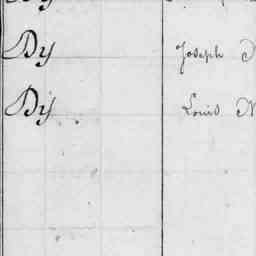 Dy Joseph
Dy Louis N